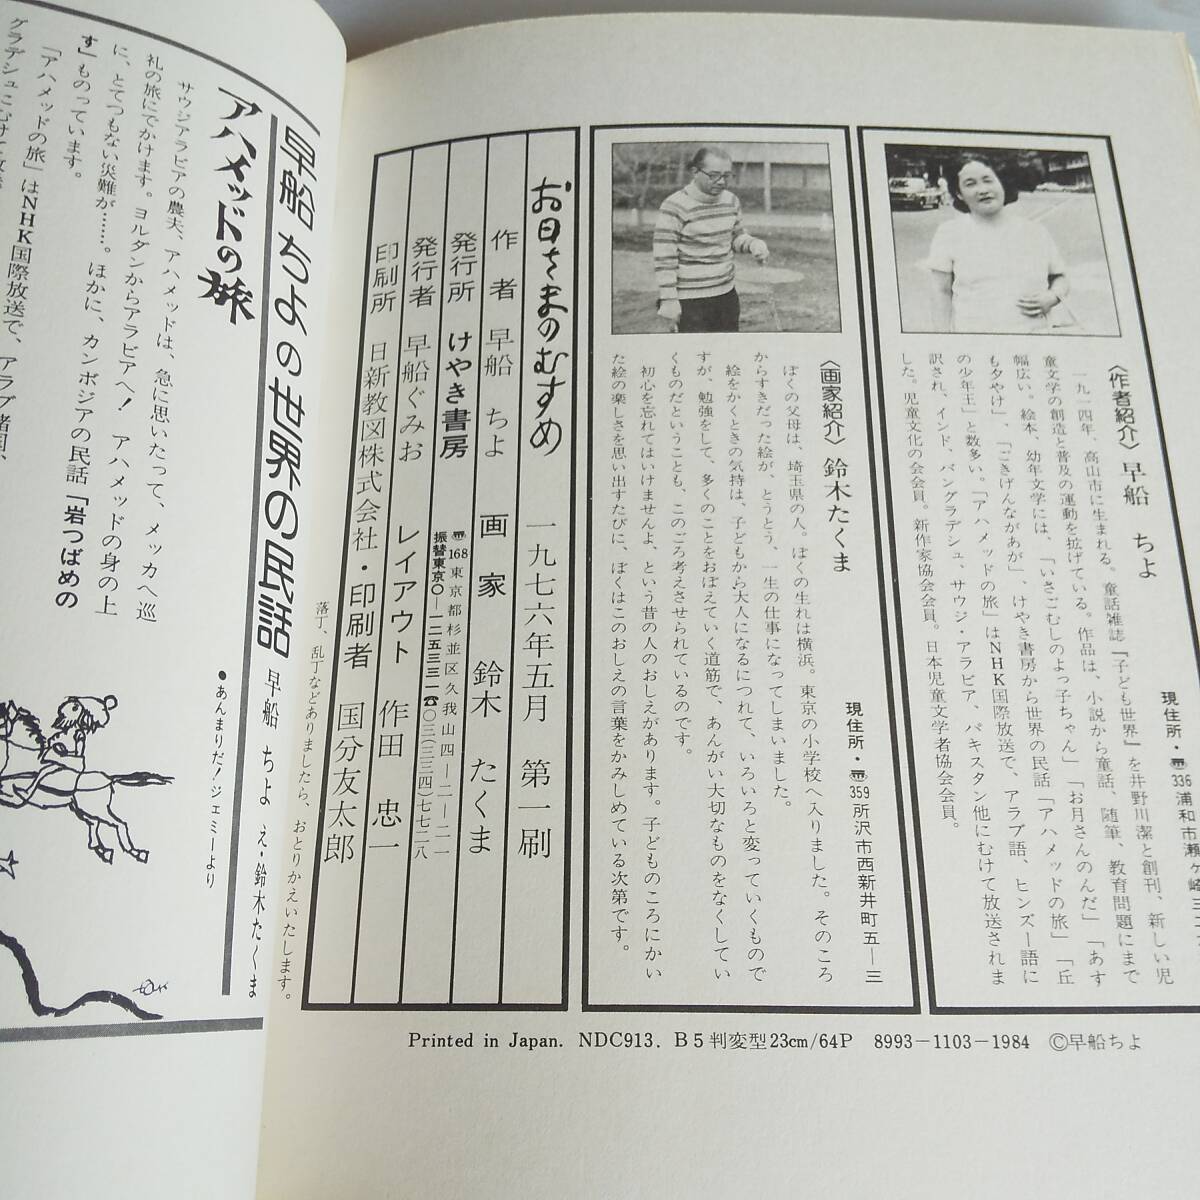 〈作者紹介〉早船 ちよ
現住所・〒336浦和市瀬ヶ崎三
一九一四年、高山市に生まれる。童話雑誌『子ども世界』を井野川潔と創刊、新しい児
童文学の創造と普及の運動を拡げている。作品は、小説から童話、随筆、教育問題にまで
幅広い。絵本、幼年文学には、「いさごむしのよっ子ちゃん」「お月さんのんだ」「あす
も夕やけ」、「ごきげんなながあが」、けやき書房から世界の民話「アハメッドの旅」「丘
の少年王」と数多い。「アハメッドの旅」はNHK国際放送で、アラブ語、ヒンズー語に
訳され、インド、バングラデシュ、サウジ・アラビア、パキスタン他にむけて放送されま
した。児童文化の会会員。新作家協会会員。日本児童文学者協会会員。
〈画家紹介〉鈴木たくま
現住所・〒359所沢市西新井町五―三
ぼくの父母は、埼玉県の人。ぼくの生れは横浜。東京の小学校へ入りました。そのころ
からすきだった絵が、とうとう、一生の仕事になってしまいました。
絵をかくときの気持は、子どもから大人になるにつれて、いろいろと変っていくもので
すが、勉強をして、多くのことをおぼえていく道筋で、あんがい大切なものをなくしてい
くものだということも、このごろ考えさせられているのです。
初心を忘れてはいけませんよ、という昔の人のおしえがあります。子どものころにかい
た絵の楽しさを思い出すたびに、ぼくはこのおしえの言葉をかみしめている次第です。
お日さまのむすめ 一九七六年五月 第一刷
作者 早船ちよ 画家 鈴木たくま
発行所 けやき書房 〒168東京都杉並区久我山四―二―二一
振替東京〇―一二五三三一☎〇三(三三四)七七二八
発行者 早船ぐみお レイアウト 作田忠一
印刷所 日新教図株式会社・印刷者 国分友太郎
落丁、乱丁などありましたら、おとりかえいたします。
Printed in Japan. NDC913. B5判変型23cm/64P 8993-1103-1984 ©早船ちよ
早船ちよの世界の民話 早船 ちよ え・鈴木たくま
アハメッドの旅
●あんまりだ!ジェミーより
サウジアラビアの農夫、アハメッドは、急に思いたって、メッカへ巡
礼の旅にでかけます。ヨルダンからアラビアへ! アハメッドの身の上
に、とてつもない災難が……。ほかに、カンボジアの民話「岩つばめの
す」ものっています。
「アハメッドの旅」はNHK国際放送で、アラブ諸国、